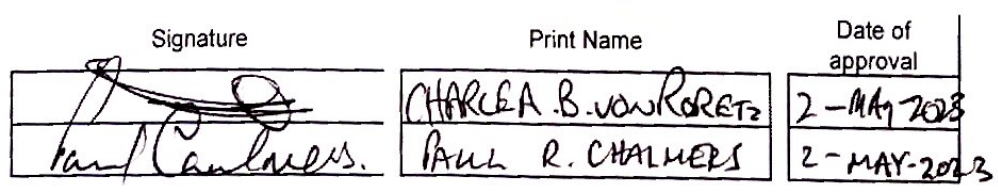 Signature Print Name Date of
approval
CHARLEA.B.VONRORETZ 2-MAY-2023
Paul Chalmers. PAUL R. CHALMERS 2-MAY-2023